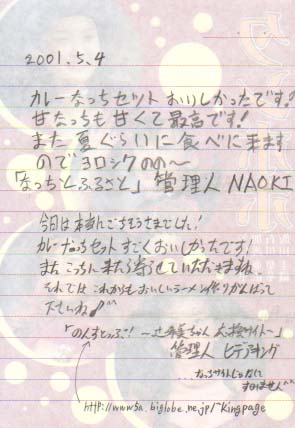 2001.5.4
カレーなっちセット おいしかったです!
甘なっちも甘くて最高です!
また夏ぐらいに食べに来ます
のでヨロシクのの〜
「なっちとふるさと」管理人 NAOKI
今日は本当にごちそうさまでした!
カレーなっちセットすごくおいしかったです!
またこっちに来たら寄らせていただきますね。
それではこれからもおいしいラーメン作りがんばって
下さいね♪^^
「のんすとっぷ!〜辻希美ちゃん応援サイト〜」
管理人 ヒデアキング
...なっちサイトじゃなくて
すいません^^
http://www5a.biglobe.ne.jp/~kingpage